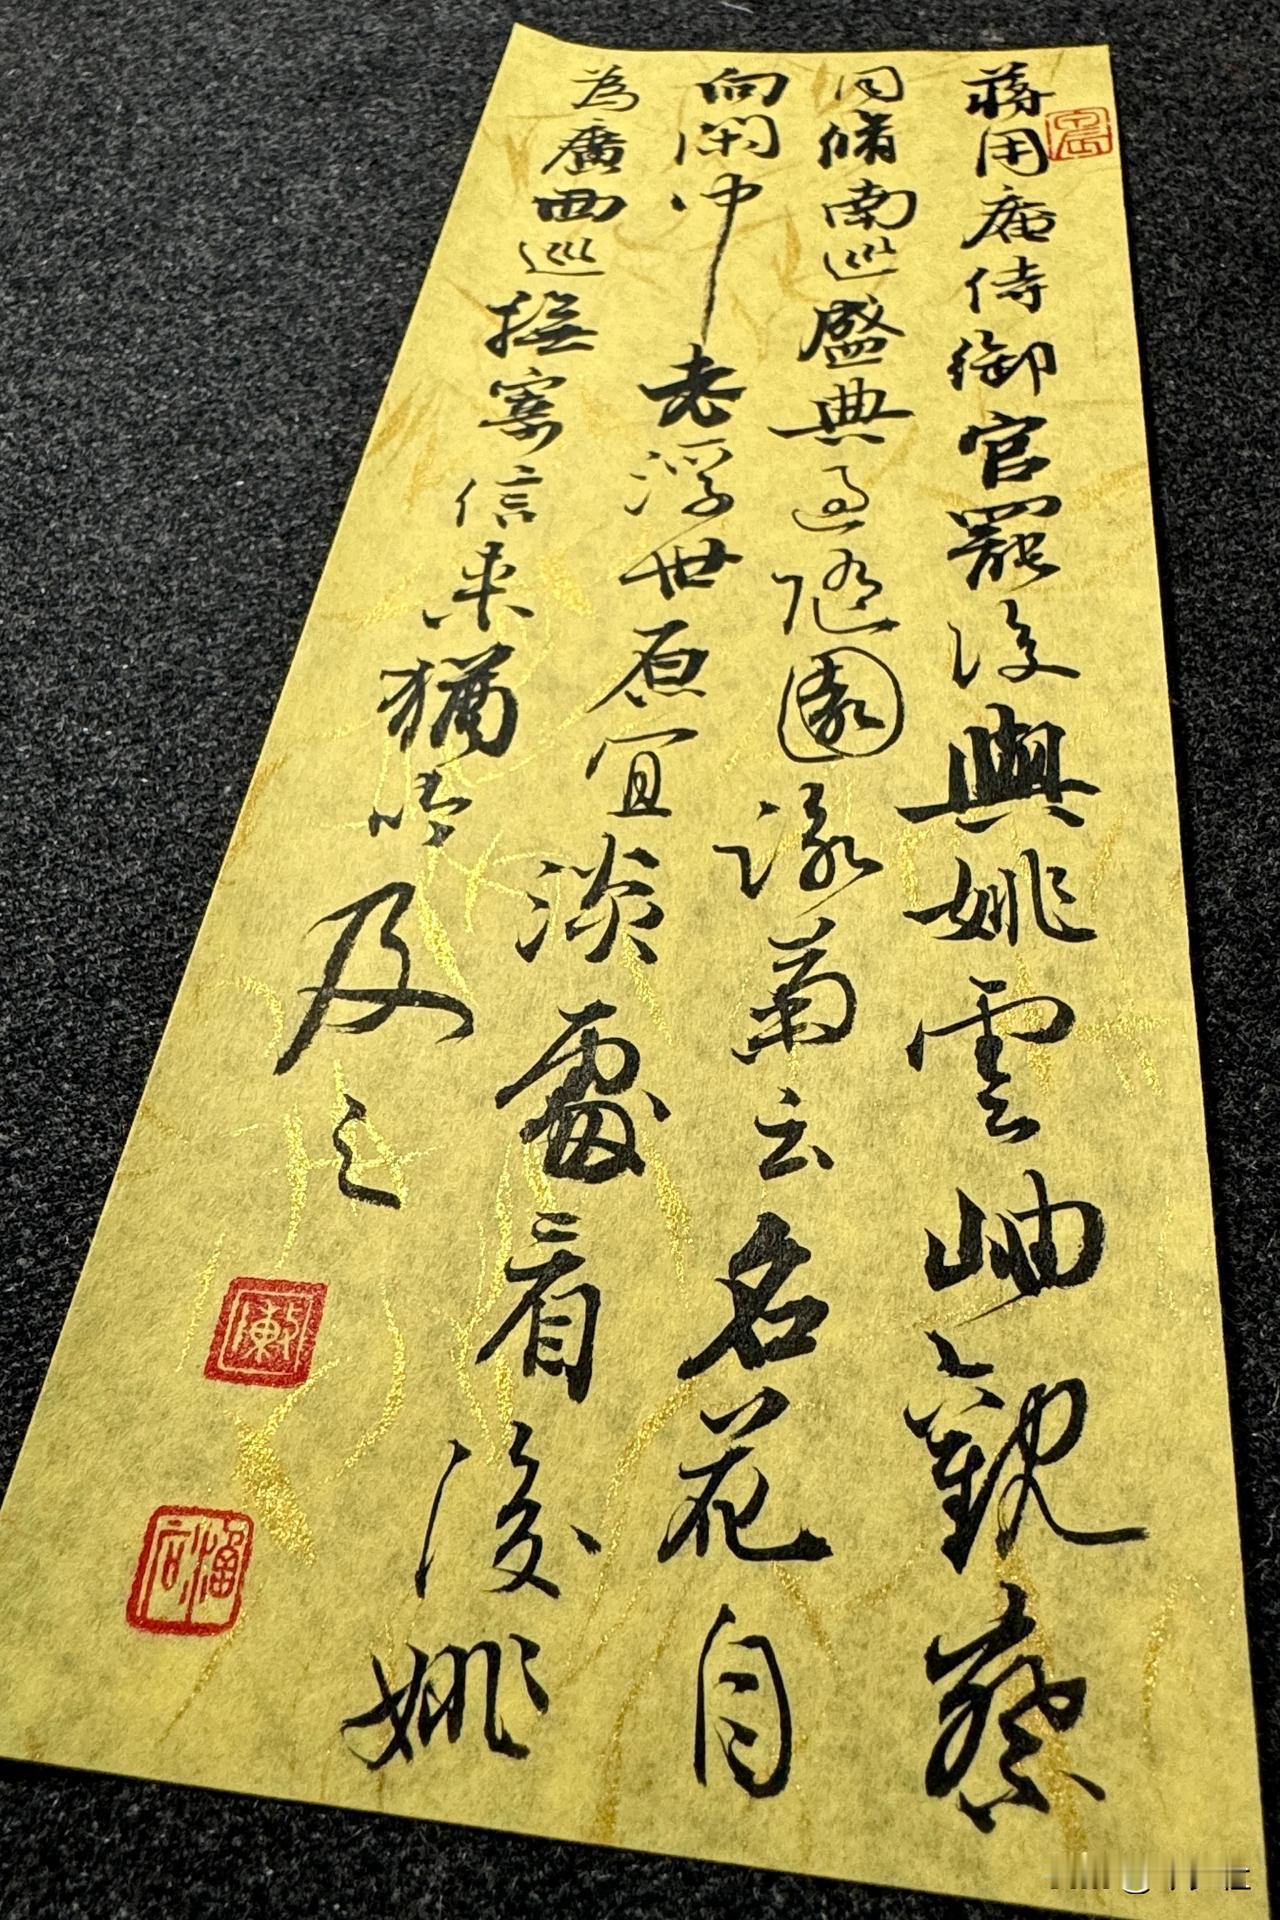 蔣用庵侍御官罷後與姚雲岫觀察
同修南巡盛典過隨園詠菊云名花自
向閑中老浮世原宜淡處看後姚
為廣西巡撫寄信來猶吟及之